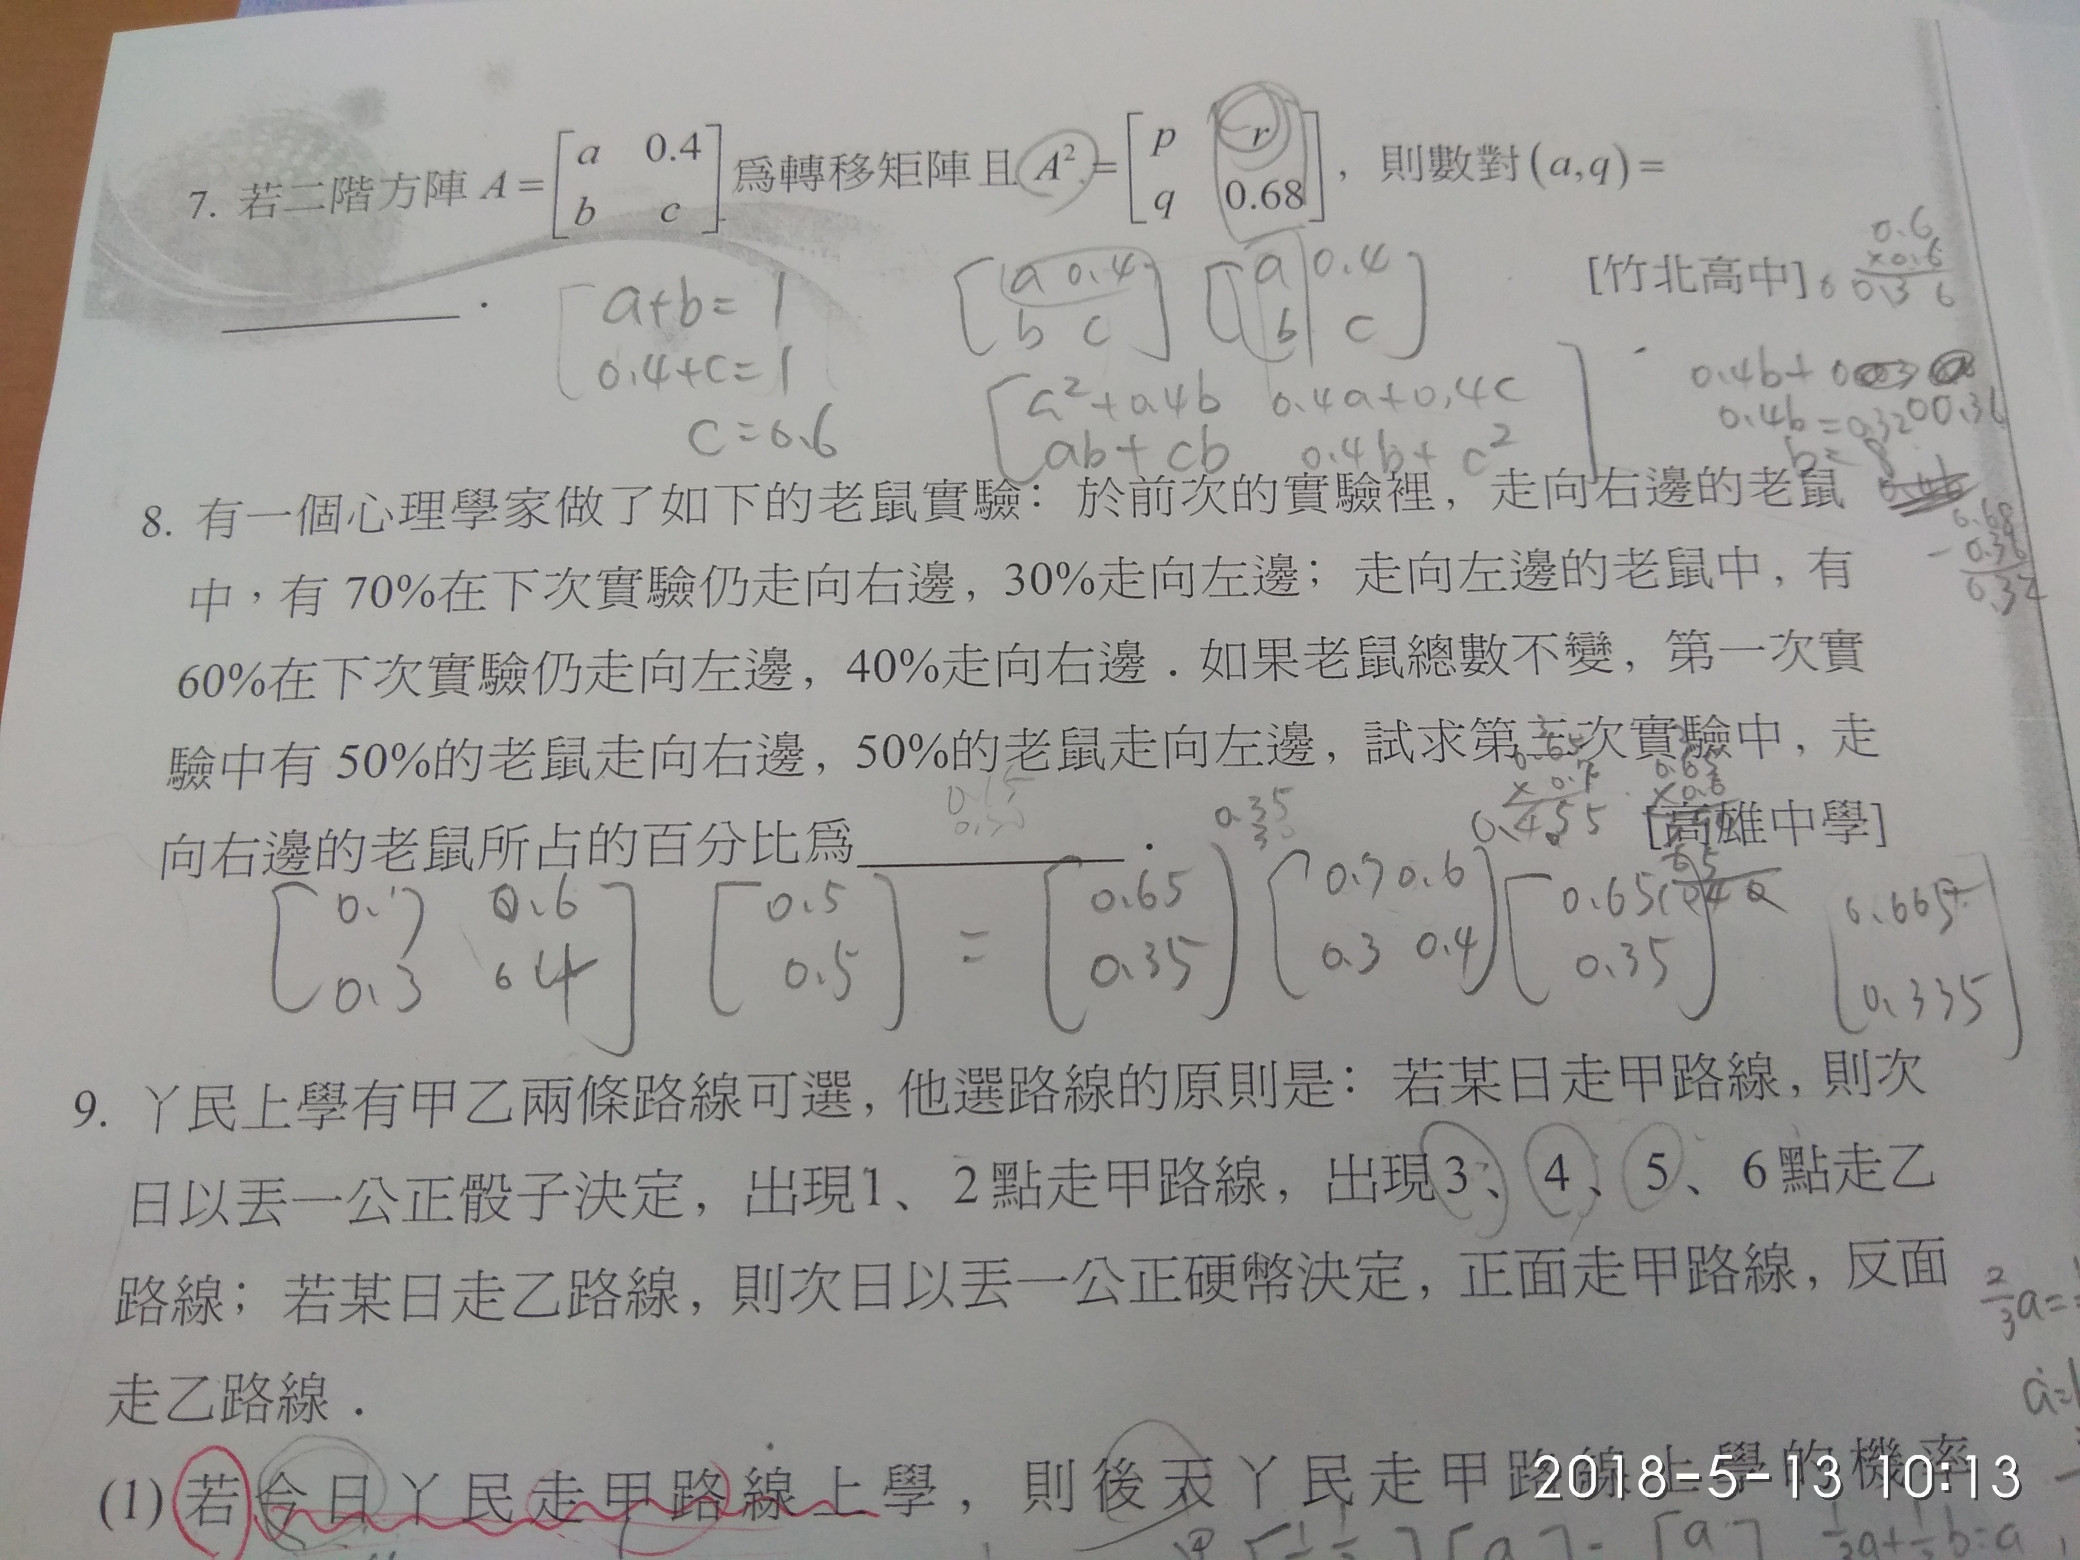 7. 若二階方陣 A = [ a 0.4 b c ] 為轉移矩陣且 A² = [ p r q 0.68 ] ，則數對 (a,q) =
0.6
×0.6
0.36
[竹北高中]
a+b=1
0.4+c=1
c=0.6
[ a 0.4 b c ] [ a 0.4 b c ]
[ a²+0.4b 0.4a+0.4c
ab+cb 0.4b+c² ]
0.4b+
0.4b=0.32
0.36
b=
8. 有一個心理學家做了如下的老鼠實驗：於前次的實驗裡，走向右邊的老鼠
0.68
-0.36
0.32
中，有 70%在下次實驗仍走向右邊，30%走向左邊；走向左邊的老鼠中，有
60%在下次實驗仍走向左邊，40%走向右邊．如果老鼠總數不變，第一次實
驗中有 50%的老鼠走向右邊，50%的老鼠走向左邊，試求第三次實驗中，走
向右邊的老鼠所占的百分比為 ． [高雄中學]
0.35
0.455
[ 0.7 0.6 0.3 0.4 ] [ 0.5 0.5 ] = [ 0.65 0.35 ] [ 0.7 0.6 0.3 0.4 ] [ 0.65 0.35 ] [ 0.665 0.335 ]
9. 丫民上學有甲乙兩條路線可選，他選路線的原則是：若某日走甲路線，則次
日以丟一公正骰子決定，出現1、2點走甲路線，出現3、4、5、6點走乙
路線；若某日走乙路線，則次日以丟一公正硬幣決定，正面走甲路線，反面
走乙路線．
(1) 若今日丫民走甲路線上學，則後天丫民走甲路線上學的機率
2018-5-13 10:13